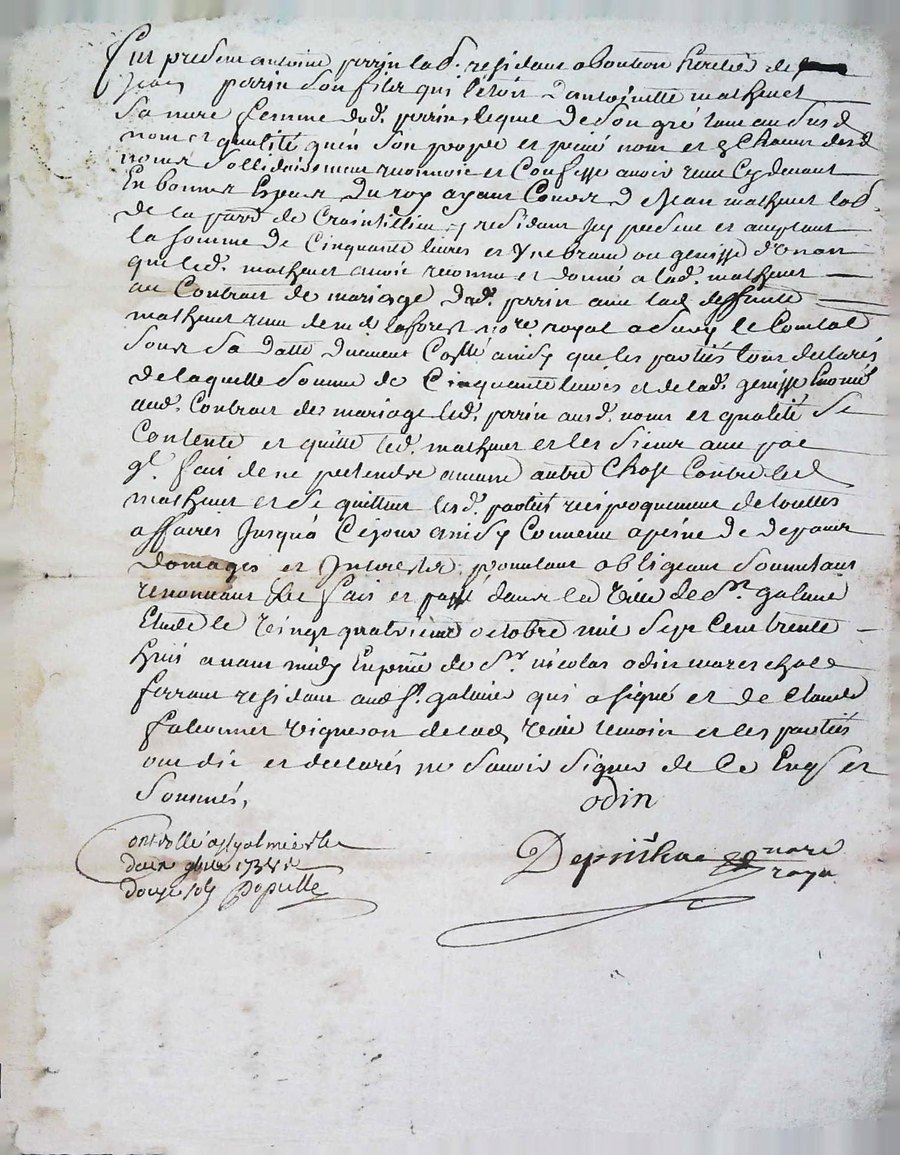 fut present antoine perrin lab. residant a bouteon heritier de
Jean perrin son filz qui l'étoit d'antoinette matheuet
sa mere femme dud. perrin lequel de son gré tant au susd.
nom et qualité qu'en son propre et privé nom et chacun desd.
noms sollidairement reconnoit et Confesse avoir receu Cy devant
En bonnes Especes du roy ayant Cours de Jean matheuet lab.
de la parr. de Craintillieu y residant Icy present et acceptant
la somme de Cinquante livres et Une brave ou genisse d'Un an
que led. matheuet avoit reconnu et donné a lad. matheuet
au Contrat de mariage dud. perrin avec lad. deffunte
matheuet receu de me de laforest nore. royal a Sury le Comtal
sous sa datte duement Collé ainsy que les parties l'ont declarés
de laquelle somme de Cinquante livres et de lad. genisse Enoncé
aud. Contrat de mariage led. perrin ausd. noms et qualité se
Contente et quitte led. matheuet et les siens avec pac
fait de ne pretendre aucune autre Chose Contre led.
matheuet et se quittent lesd. parties reciproquement de touttes
affaires Jusqua Ce jour ainsy Convenu a peine de depans
domages et Interests promettant obligeant soumettant
renonceant fait et passé dans la Ville de St. galmier
Etude le Vingt quatrieme octobre mil Sept Cent trente
huit avant midy En pnce de Sr. nicolas odin marechal
ferrant residant aud St. galmier qui a signé et de Claude
falconnet Vigneron de lad. Ville temoin et les parties
ont dit et declarés ne savoir signer de Ce Enquis et
sommés,
odin
Controllé a St galmier le
1738 R
douze sols Populle
nore
royal